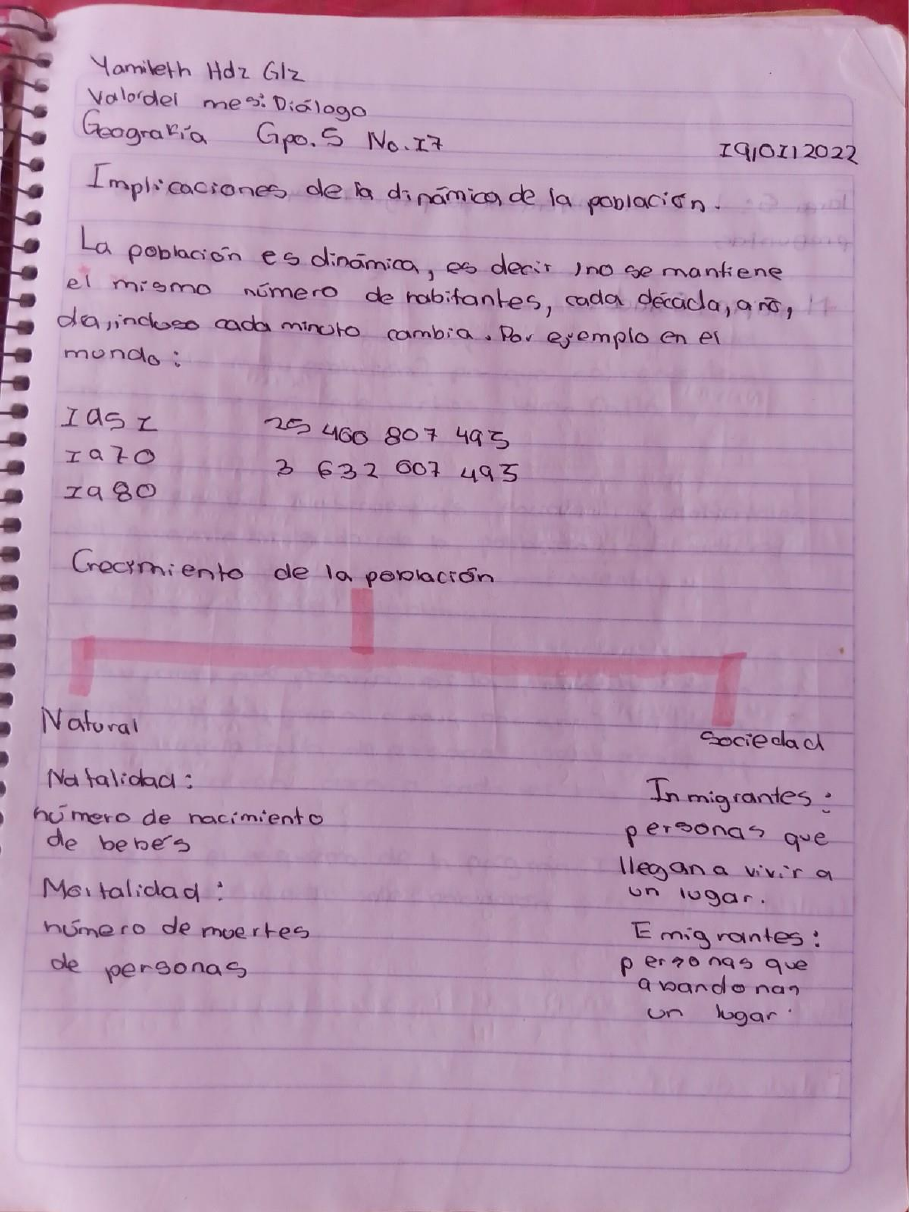 Yamileth Hdz Glz
Valordel mes: Diálogo
Geografía Gpo. 5 No. I7
I9/0I/2022
Implicaciones de la dinámica de la población.
La población es dinámica, es decir, no se mantiene
el mismo número de habitantes, cada década, año,
día, incluso cada minuto cambia. Por ejemplo en el
mundo:
I95I 25 460 807 495
I970 3 632 607 495
I980
Crecimiento de la población
Natural
Sociedad
Natalidad:
número de nacimiento
de bebés
Mortalidad:
número de muertes
de personas
Inmigrantes:
personas que
llegan a vivir a
un lugar.
Emigrantes:
personas que
abandonan
un lugar.